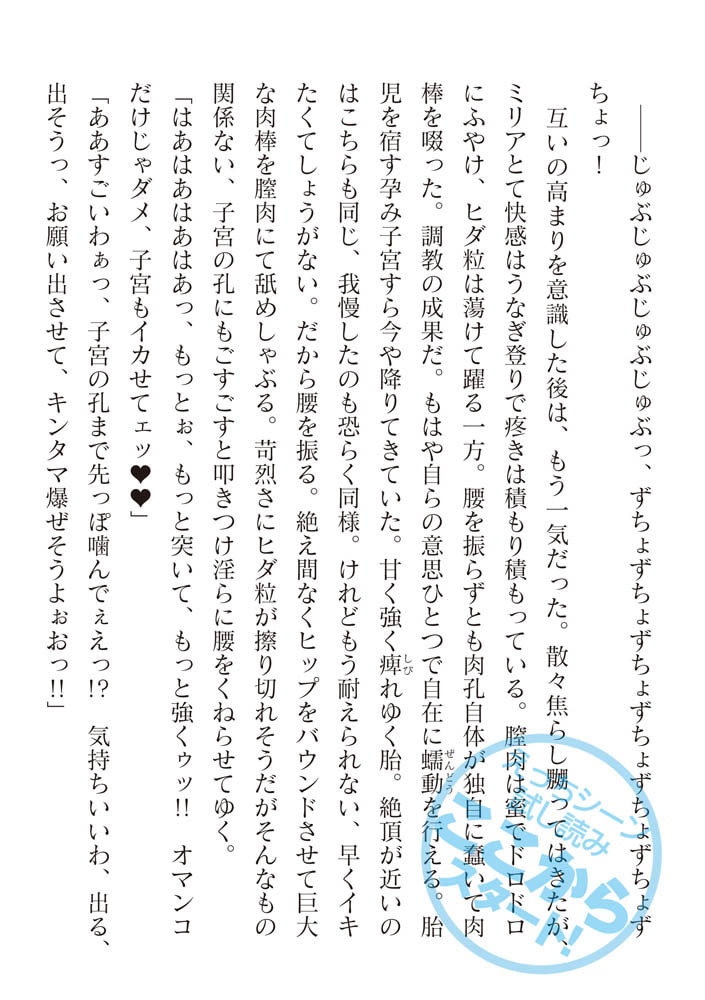 ――じゅぶじゅぶじゅぶじゅぶっ、ずちょずちょずちょずちょずちょずちょず
ちょっ！
互いの高まりを意識した後は、もう一気だった。散々焦らし嬲ってはきたが、
ミリアとて快感はうなぎ登りで疼きは積もり積もっている。膣肉は蜜でドロドロ
にふやけ、ヒダ粒は蕩けて躍る一方。腰を振らずとも肉孔自体が独自に蠢いて肉
棒を啜った。調教の成果だ。もはや自らの意思ひとつで自在に蠕動を行える。胎
児を宿す孕み子宮すら今や降りてきていた。甘く強く痺れゆく胎。絶頂が近いの
はこちらも同じ、我慢したのも恐らく同様。けれどもう耐えられない、早くイキ
たくてしょうがない。だから腰を振る。絶え間なくヒップをバウンドさせて巨大
な肉棒を膣肉にて舐めしゃぶる。苛烈さにヒダ粒が擦り切れそうだがそんなもの
関係ない、子宮の孔にもごすごすと叩きつけ淫らに腰をくねらせてゆく。
「はあはあはあはあっ、もっとぉ、もっと突いて、もっと強くゥッ!!　オマンコ
だけじゃダメ、子宮もイカせてェッ♥♥」
「ああすごいわぁっ、子宮の孔まで先っぽ噛んでぇえっ!?　気持ちいいわ、出る、
出そうっ、お願い出させて、キンタマ爆ぜそうよぉおっ!!」
しび
ぜんどう
えっちシーン
試し読み
ここから
スタート!